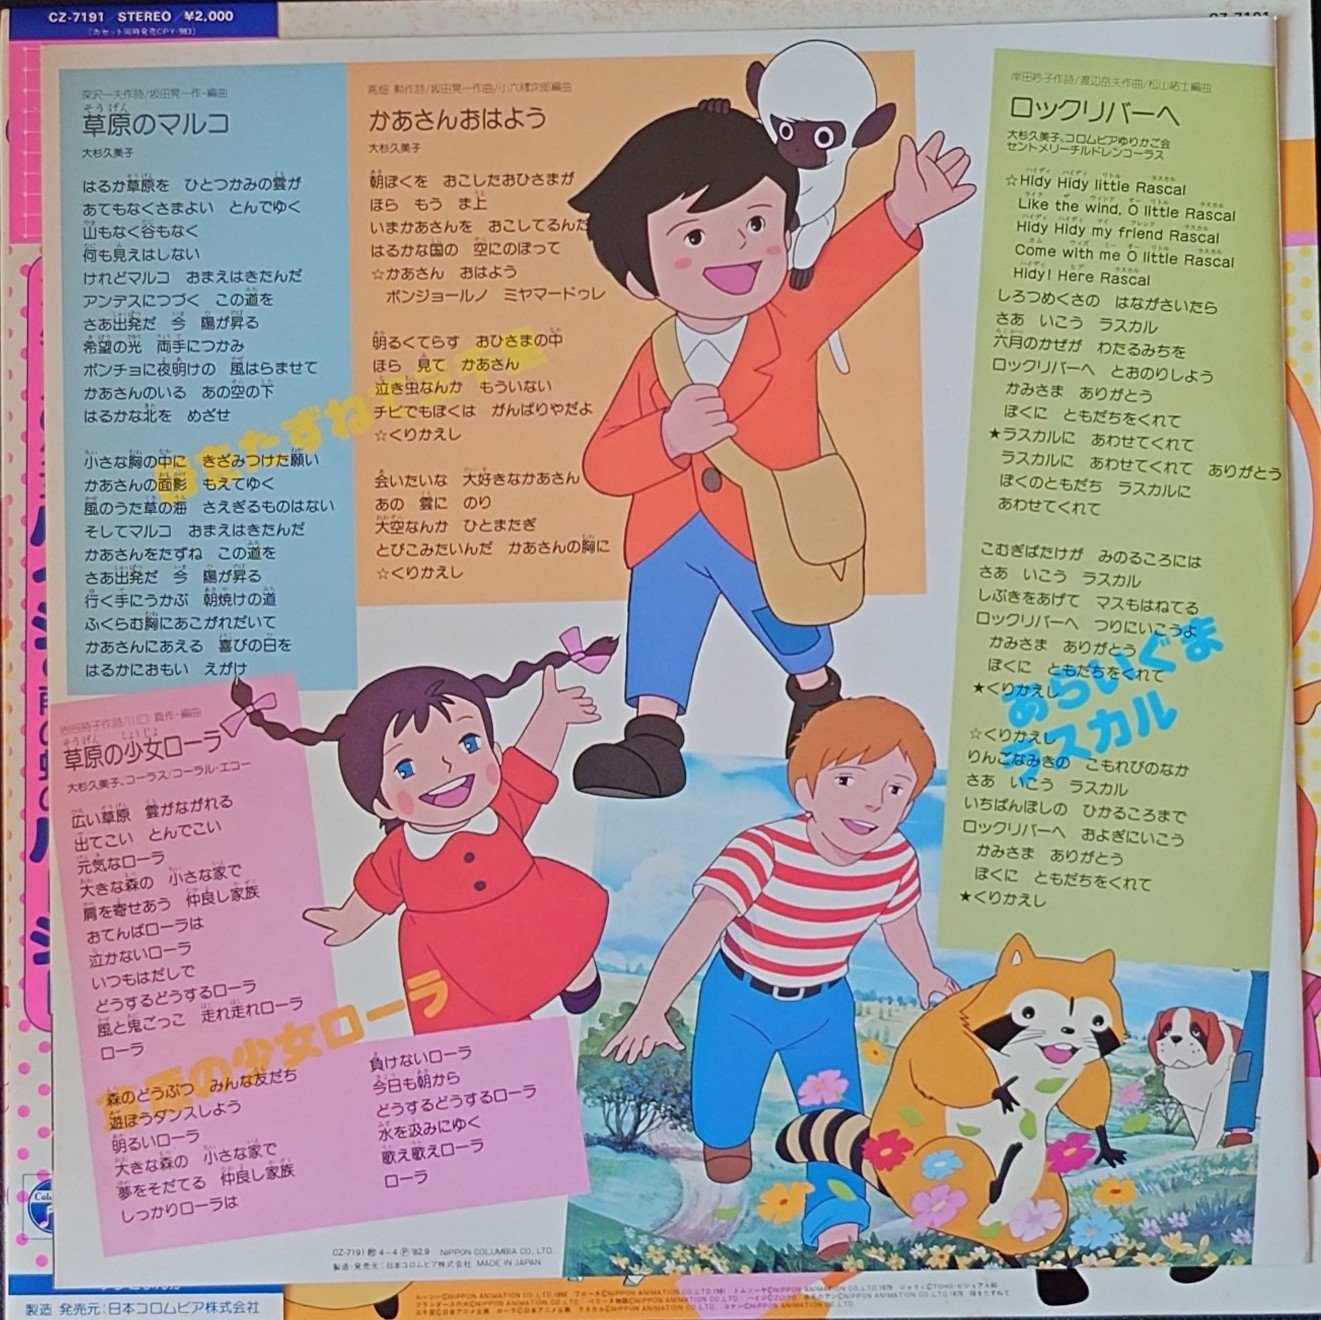 CZ-7191 STEREO/¥2,000
深沢一夫作詩/坂田晃一作・編曲
草原のマルコ
大杉久美子
はるか草原を ひとつかみの雲が
あてもなくさまよい とんでゆく
山もなく谷もなく
何も見えはしない
けれどマルコ おまえはきたんだ
アンデスにつづく この道を
さあ出発だ 今 陽が昇る
希望の光 両手につかみ
ポンチョに夜明けの 風はらませて
かあさんのいる あの空の下
はるかな北を めざせ
小さな胸の中に きざみつけた願い
かあさんの面影 もえてゆく
風のうた草の海 さえぎるものはない
そしてマルコ おまえはきたんだ
かあさんをたずね この道を
さあ出発だ 今 陽が昇る
行く手にうかぶ 朝焼けの道
ふくらむ胸にあこがれだいて
かあさんにあえる 喜びの日を
はるかにおもい えがけ
高畑 勲作詩/坂田晃一作曲/小六禮次郎編曲
かあさんおはよう
大杉久美子
朝ぼくを おこしたおひさまが
ほら もう ま上
いまかあさんを おこしてるんだ
はるかな国の 空にのぼって
☆かあさん おはよう
ボンジョールノ ミヤマードゥレ
明るくてらす おひさまの中
ほら 見て かあさん
泣き虫なんか もういない
チビでもぼくは がんばりやだよ
☆くりかえし
会いたいな 大好きなかあさん
あの 雲に のり
大空なんか ひとまたぎ
とびこみたいんだ かあさんの胸に
☆くりかえし
岸田衿子作詩/渡辺岳夫作曲/松山祐士編曲
ロックリバーへ
大杉久美子、コロムビアゆりかご会
セントメリーチルドレンコーラス
☆Hidy Hidy little Rascal
Like the wind, O little Rascal
Hidy Hidy my friend Rascal
Come with me O little Rascal
Hidy! Here Rascal
しろつめくさの はながさいたら
さあ いこう ラスカル
六月のかぜが わたるみちを
ロックリバーへ とおのりしよう
かみさま ありがとう
ぼくに ともだちをくれて
★ラスカルに あわせてくれて
ラスカルに あわせてくれて ありがとう
ぼくのともだち ラスカルに
あわせてくれて
こむぎばたけが みのるころには
さあ いこう ラスカル
しぶきをあげて マスもはねてる
ロックリバーへ つりにいこうよ
かみさま ありがとう
ぼくに ともだちをくれて
★くりかえし
☆くりかえし
りんごなみきの こもれびのなか
さあ いこう ラスカル
いちばんぼしの ひかるころまで
ロックリバーへ およぎにいこう
かみさま ありがとう
ぼくに ともだちをくれて
★くりかえし
あらいぐま
ラスカル
岩谷時子作詩/川口 真作・編曲
草原の少女ローラ
大杉久美子、コーラス/コーラル・エコー
広い草原 雲がながれる
出てこい とんでこい
元気なローラ
大きな森の 小さな家で
肩を寄せあう 仲良し家族
おてんばローラは
泣かないローラ
いつもはだしで
どうするどうするローラ
風と鬼ごっこ 走れ走れローラ
ローラ
森のどうぶつ みんな友だち
遊ぼうダンスしよう
明るいローラ
大きな森の 小さな家で
夢をそだてる 仲良し家族
しっかりローラは
負けないローラ
今日も朝から
どうするどうするローラ
水を汲みにゆく
歌え歌えローラ
ローラ
の少女ローラ
CZ-7191 4-4 Ⓟ '82.9 NIPPON COLUMBIA CO., LTD.
製造・発売元:日本コロムビア株式会社 MADE IN JAPAN
製造 発売元:日本コロムビア株式会社